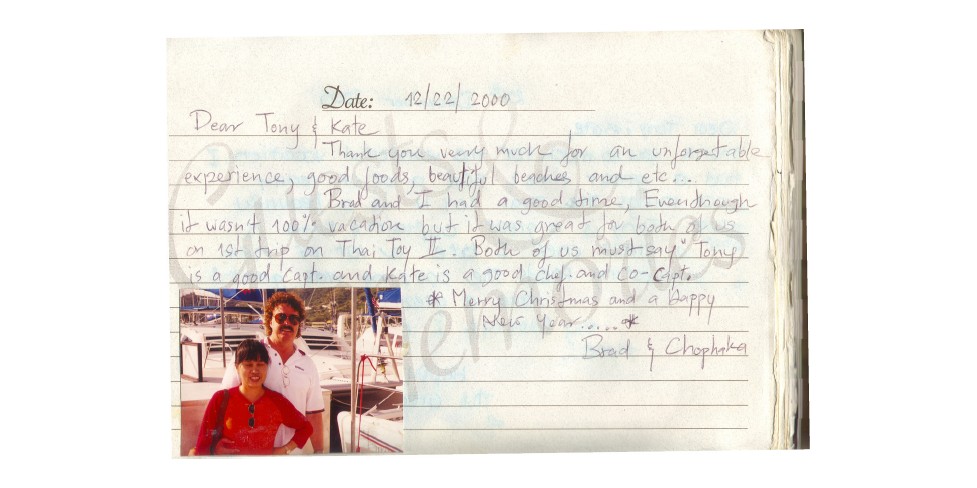 Date: 12/22/2000
Dear Tony & Kate
Thank you very much for an unforgetable
experience, good foods, beautiful beaches and etc...
Brad and I had a good time, Eventhough
it wasn't 100% vacation but it was great for both of us
on 1st trip on Thai Toy II. Both of us must say "Tony
is a good Capt. and Kate is a good chef and co-Capt.
* Merry Christmas and a happy
New Year..... *
Brad & Chophaka
Guests &
Memories